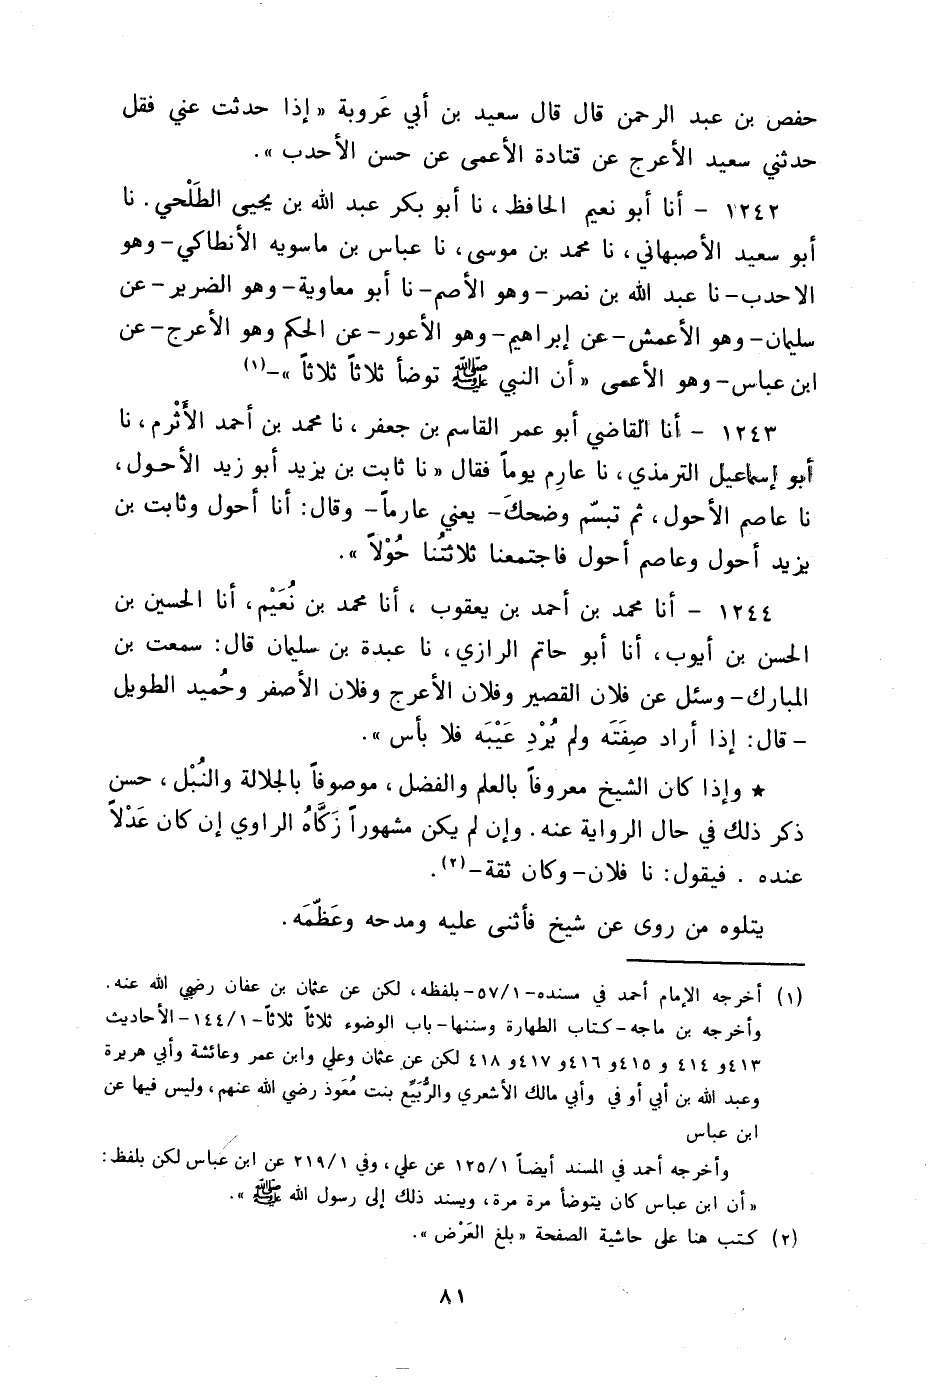 حفص بن عبد الرحمن قال قال سعيد بن أبي عَروبة « إذا حدثت عني فقل
حدثني سعيد الأعرج عن قتادة الأعمى عن حسن الأحدب ».
١٢٤٢ - أنا أبو نعيم الحافظ، نا أبو بكر عبد الله بن يحيى الطَلْحي. نا
أبو سعيد الأصبهاني، نا محمد بن موسى، نا عباس بن ماسويه الأنطاكي-وهو
الاحدب-نا عبد الله بن نصر-وهو الأصم-نا أبو معاوية-وهو الضرير-عن
سليمان-وهو الأعمش-عن إبراهيم-وهو الأعور-عن الحكم وهو الأعرج-عن
ابن عباس-وهو الأعمى « أن النبي ﷺ توضأ ثلاثاً ثلاثاً »-(١)
١٢٤٣ - أنا القاضي أبو عمر القاسم بن جعفر، نا محمد بن أحمد الأَثْرم، نا
أبو إسماعيل الترمذي، نا عارِم يوماً فقال « نا ثابت بن يزيد أبو زيد الأحول،
نا عاصم الأحول، ثم تبسّم وضحكَ- يعني عارماً- وقال: أنا أحول وثابت بن
يزيد أحول وعاصم أحول فاجتمعنا ثلاثتُنا حُوْلاً ».
١٢٤٤ - أنا محمد بن أحمد بن يعقوب ، أنا محمد بن نُعَيْم، أنا الحسين بن
الحسن بن أيوب، أنا أبو حاتم الرازي، نا عبدة بن سليمان قال: سمعت بن
المبارك-وسئل عن فلان القصير وفلان الأعرج وفلان الأصفر وحُميد الطويل
- قال: إذا أراد صِفَتَه ولم يُرْدِ عَيْبَه فلا بأس ».
★ وإذا كان الشيخ معروفاً بالعلم والفضل، موصوفاً بالجلالة والنُبْل، حسن
ذكر ذلك في حال الرواية عنه. وإن لم يكن مشهوراً زَكَّاهُ الراوي إن كان عَدْلاً
عنده . فيقول: نا فلان-وكان ثقة-(٢).
يتلوه من روى عن شيخ فأثنى عليه ومدحه وعَظّمَه.
(١) أخرجه الإمام أحمد في مسنده-٥٧/١-بلفظه، لكن عن عثمان بن عفان رضي الله عنه.
وأخرجه بن ماجه-كتاب الطهارة وسننها-باب الوضوء ثلاثاً ثلاثاً-١٤٤/١-الأحاديث
٤١٣و ٤١٤ و ٤١٥و ٤١٦و ٤١٧و ٤١٨ لكن عن عثمان وعلي وابن عمر وعائشة وأبي هريرة
وعبد الله بن أبي أوفي وأبي مالك الأشعري والرُّبَيِّع بنت مُعَوذ رضي الله عنهم، وليس فيها عن
ابن عباس
وأخرجه أحمد في المسند أيضاً ١٢٥/١ عن علي، وفي ٢١٩/١ عن ابن عباس لكن بلفظ:
« أن ابن عباس كان يتوضأ مرة مرة، ويسند ذلك إلى رسول الله ﷺ ».
(٢) كتب هنا على حاشية الصفحة « بلغ العَرْض ».
٨١